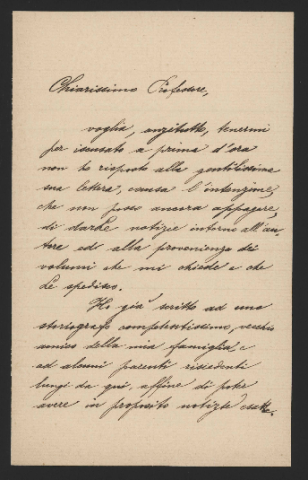 Chiarissimo Professore,
voglia, anzitutto, tenermi
per iscusato se prima d'ora
non ho risposto alla gentilissima
sua lettera, causa l'intenzione,
che non posso ancora appagare,
di darle notizie intorno all'au-
tore ed alla provenienza dei
volumi che mi chiede e che
Le spedisco.
Ho già scritto ad uno
storiografo competentissimo, vecchio
amico della mia famiglia, e
ad alcuni parenti risiedenti
lungi da qui, affine di poter
avere in proposito notizie esatte.